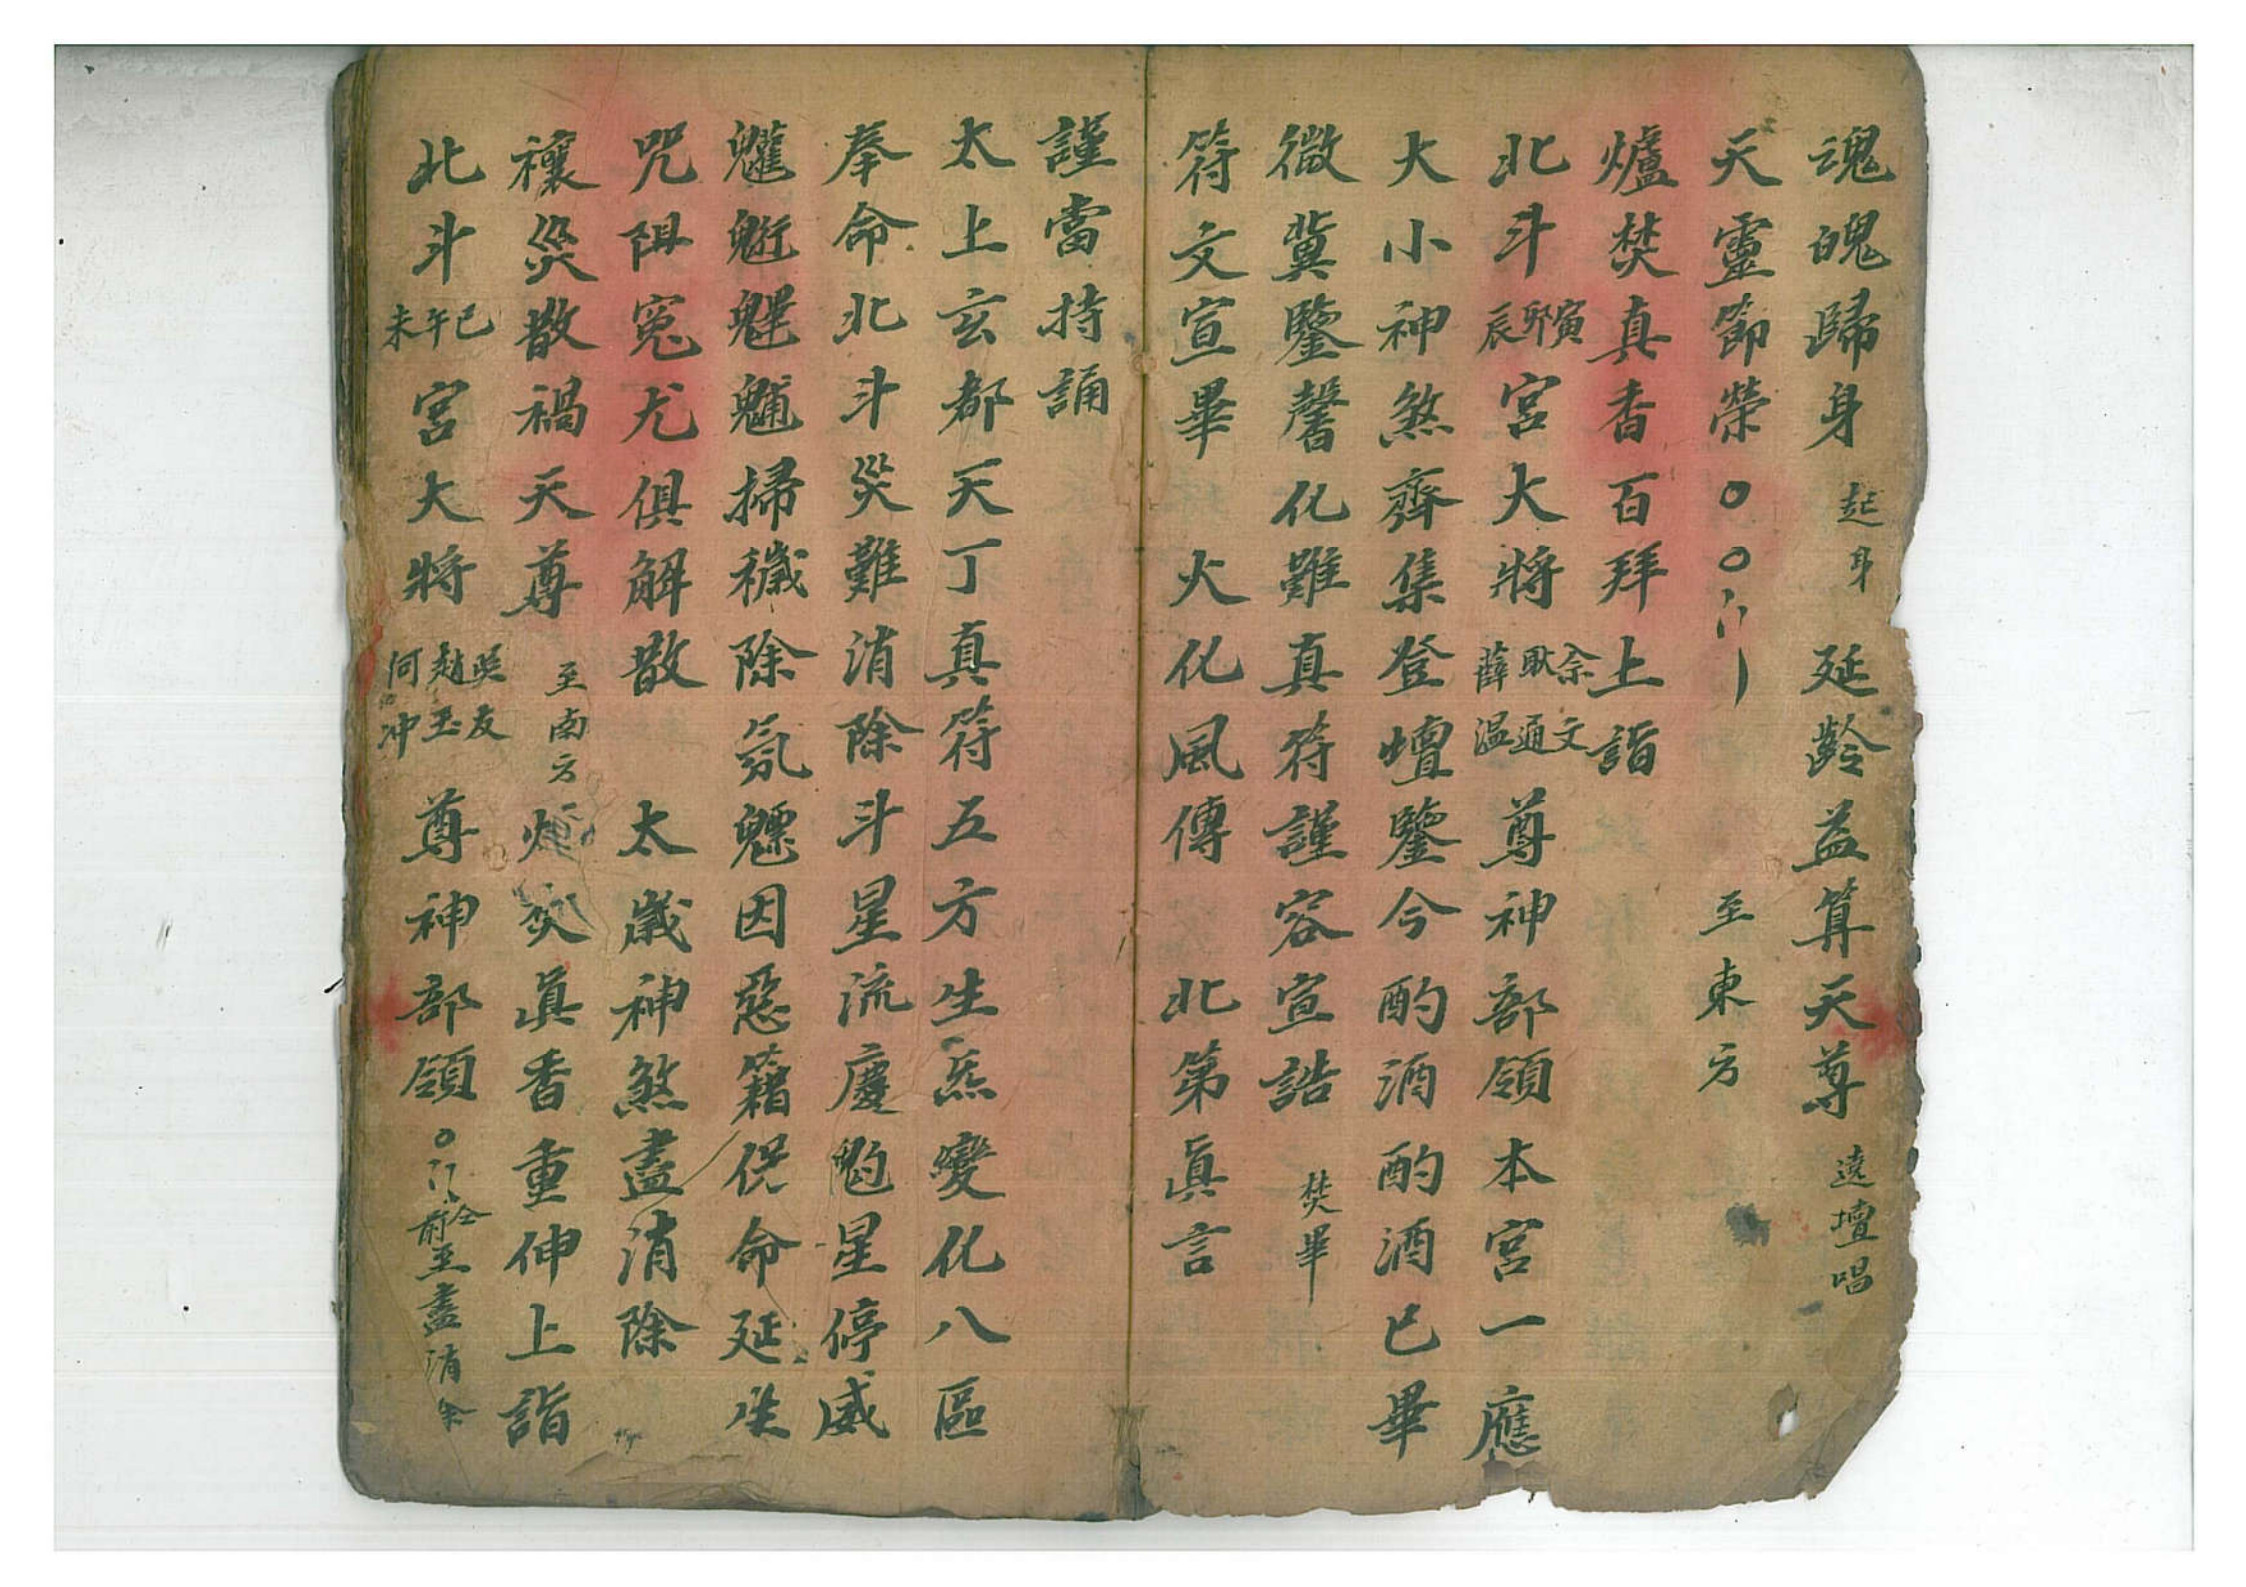 魂魄歸身 起身 延齡益算天尊 遶壇唱
天靈節榮〇〇 至東方
爐焚真香百拜上詣
北斗寅卯辰宮大將 文通 薛温 尊神部領本宮一應
大小神煞齊集登壇鑒今酌酒酌酒已畢
微冀鑒馨化難真符謹容宣誥 焚畢
符文宣畢 火化風傳 北第眞言
謹當持誦
太上玄都天丁真符五方生炁變化八區
奉命北斗災難消除斗星流慶魁星停威
掃穢除氛魒因惡籍保命延生
咒阻冤尤俱解散 太歲神煞盡消除
禳災散禍天尊 至南方 爐焚眞香重伸上詣
北斗巳午未宮大將 友 趙玉 何冲 尊神部領〇 仝前至盡消除